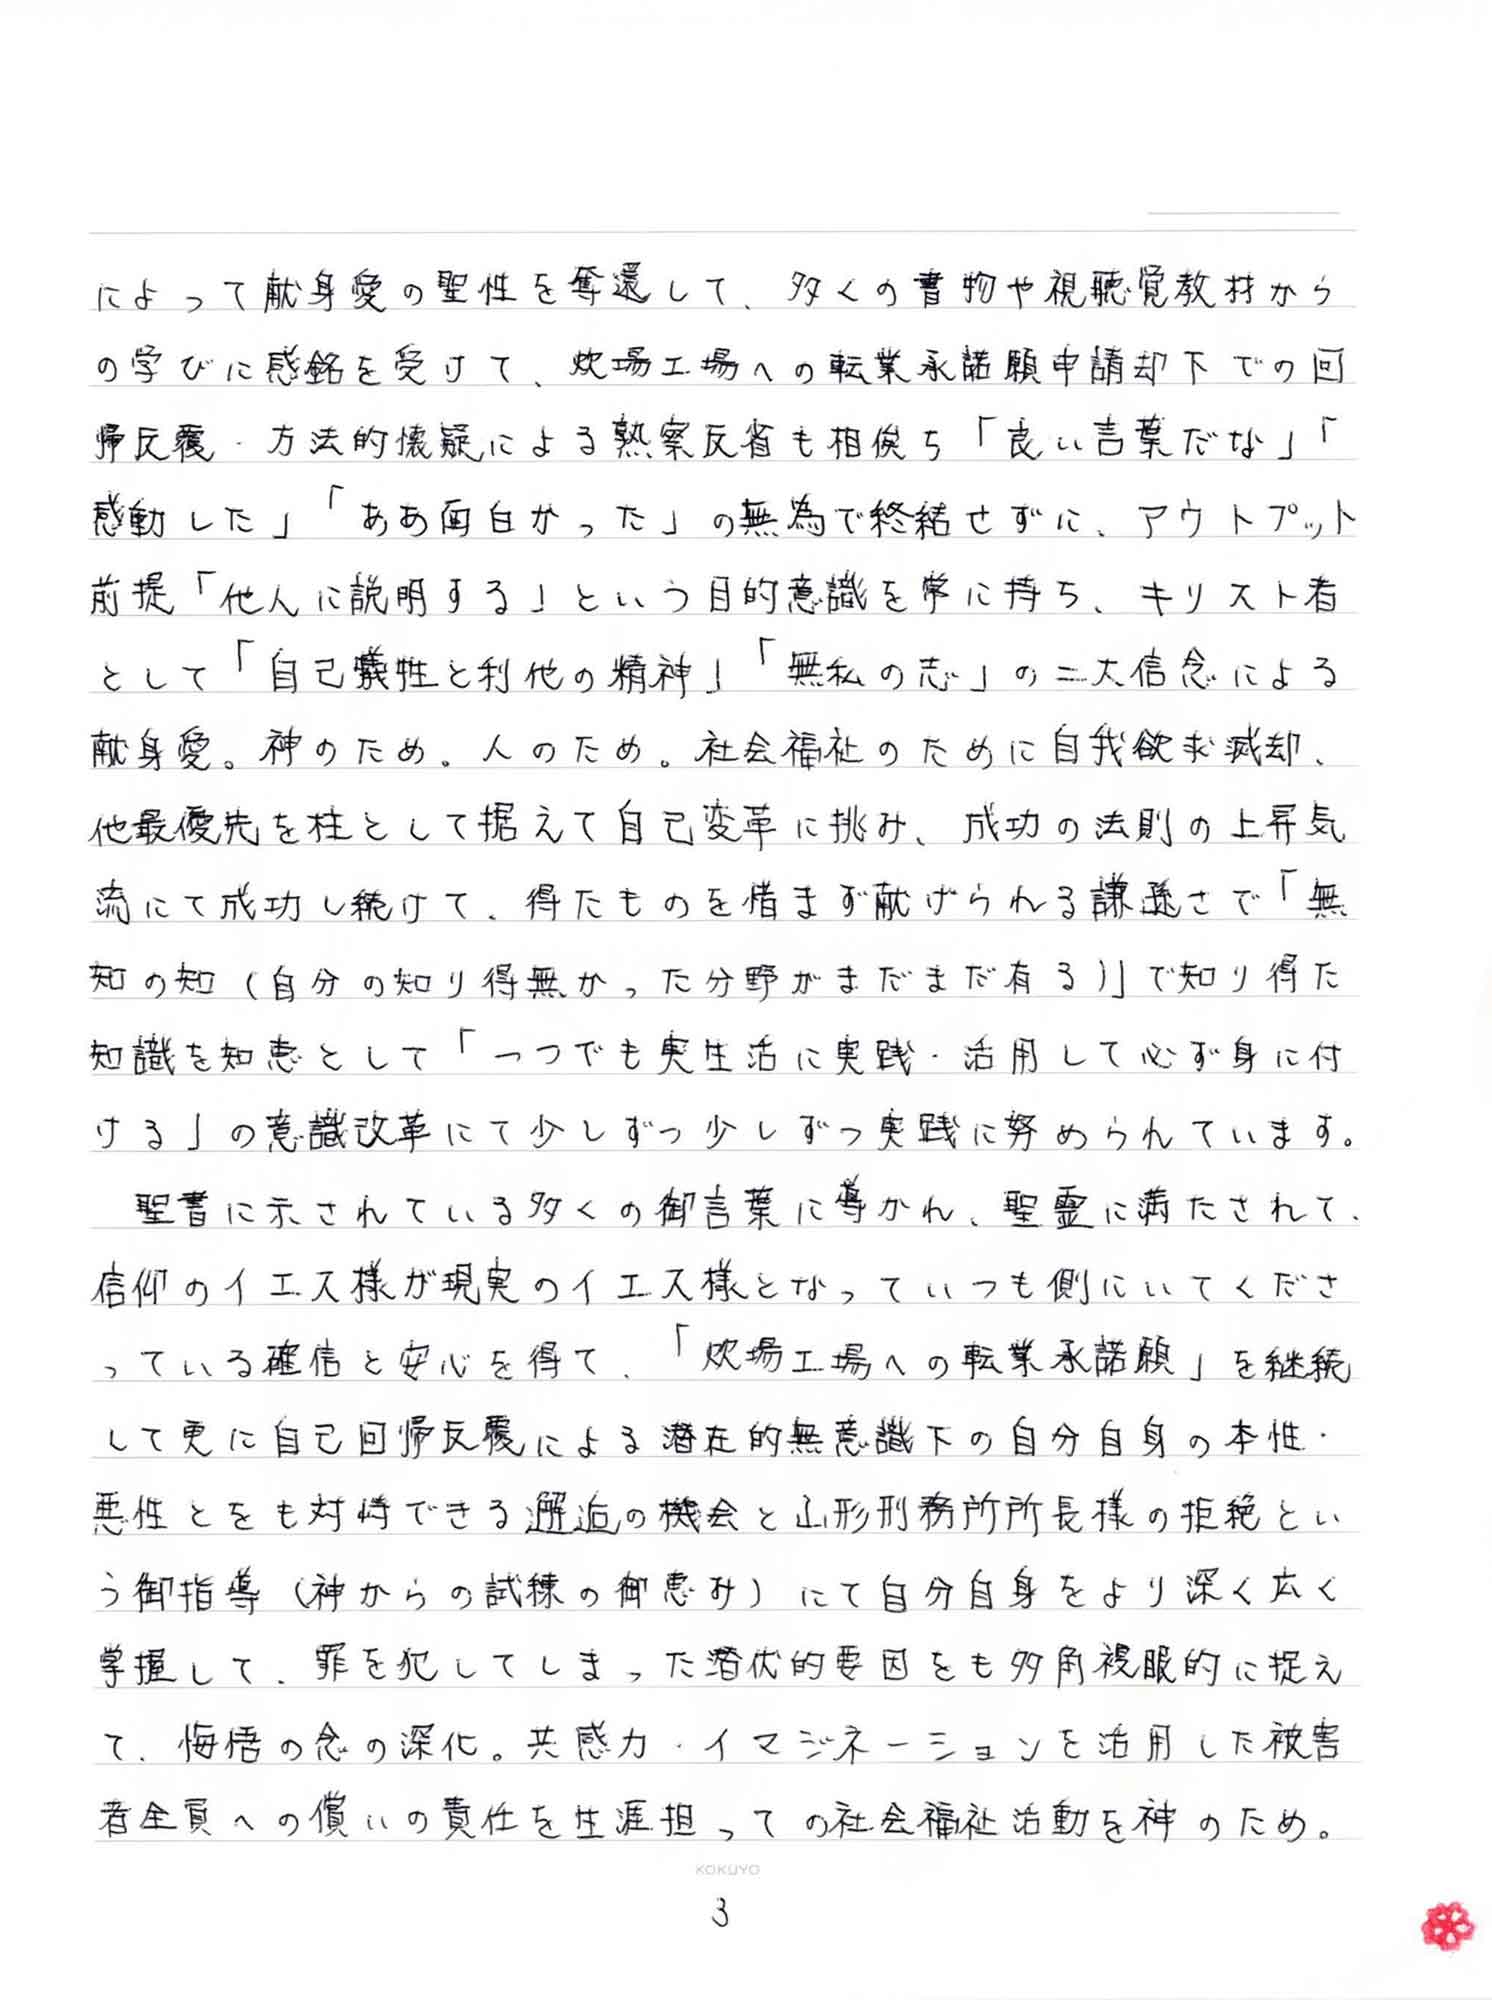 によって献身愛の聖性を奪還して、多くの書物や視聴覚教材から
の学びに感銘を受けて、炊場工場への転業承諾願申請却下での回
帰反覆・方法的懐疑による熟察反省も相俟ち「良い言葉だな」「
感動した」「ああ面白かった」の無為で終結せずに、アウトプット
前提「他人に説明する」という目的意識を常に持ち、キリスト者
として「自己犠牲と利他の精神」「無私の志」の二大信念による
献身愛。神のため。人のため。社会福祉のために自我欲求滅却、
他最優先を柱として据えて自己変革に挑み、成功の法則の上昇気
流にて成功し続けて、得たものを惜まず献げられる謙遜さで「無
知の知(自分の知り得無かった分野がまだまだ有る)」で知り得た
知識を知恵として「一つでも実生活に実践・活用して必ず身に付
ける」の意識改革にて少しずつ少しずつ実践に努められています。
聖書に示されている多くの御言葉に導かれ、聖霊に満たされて、
信仰のイエス様が現実のイエス様となっていつも側にいてくださ
っている確信と安心を得て、「炊場工場への転業承諾願」を継続
して更に自己回帰反覆による潜在的無意識下の自分自身の本性・
悪性とをも対峙できる邂逅の機会と山形刑務所所長様の拒絶とい
う御指導(神からの試練の御恵み)にて自分自身をより深く広く
掌握して、罪を犯してしまった潜伏的要因をも多角複眼的に捉え
て、悔悟の念の深化。共感力・イマジネーションを活用した被害
者全員への償いの責任を生涯担っての社会福祉活動を神のため。
KOKUYO
3